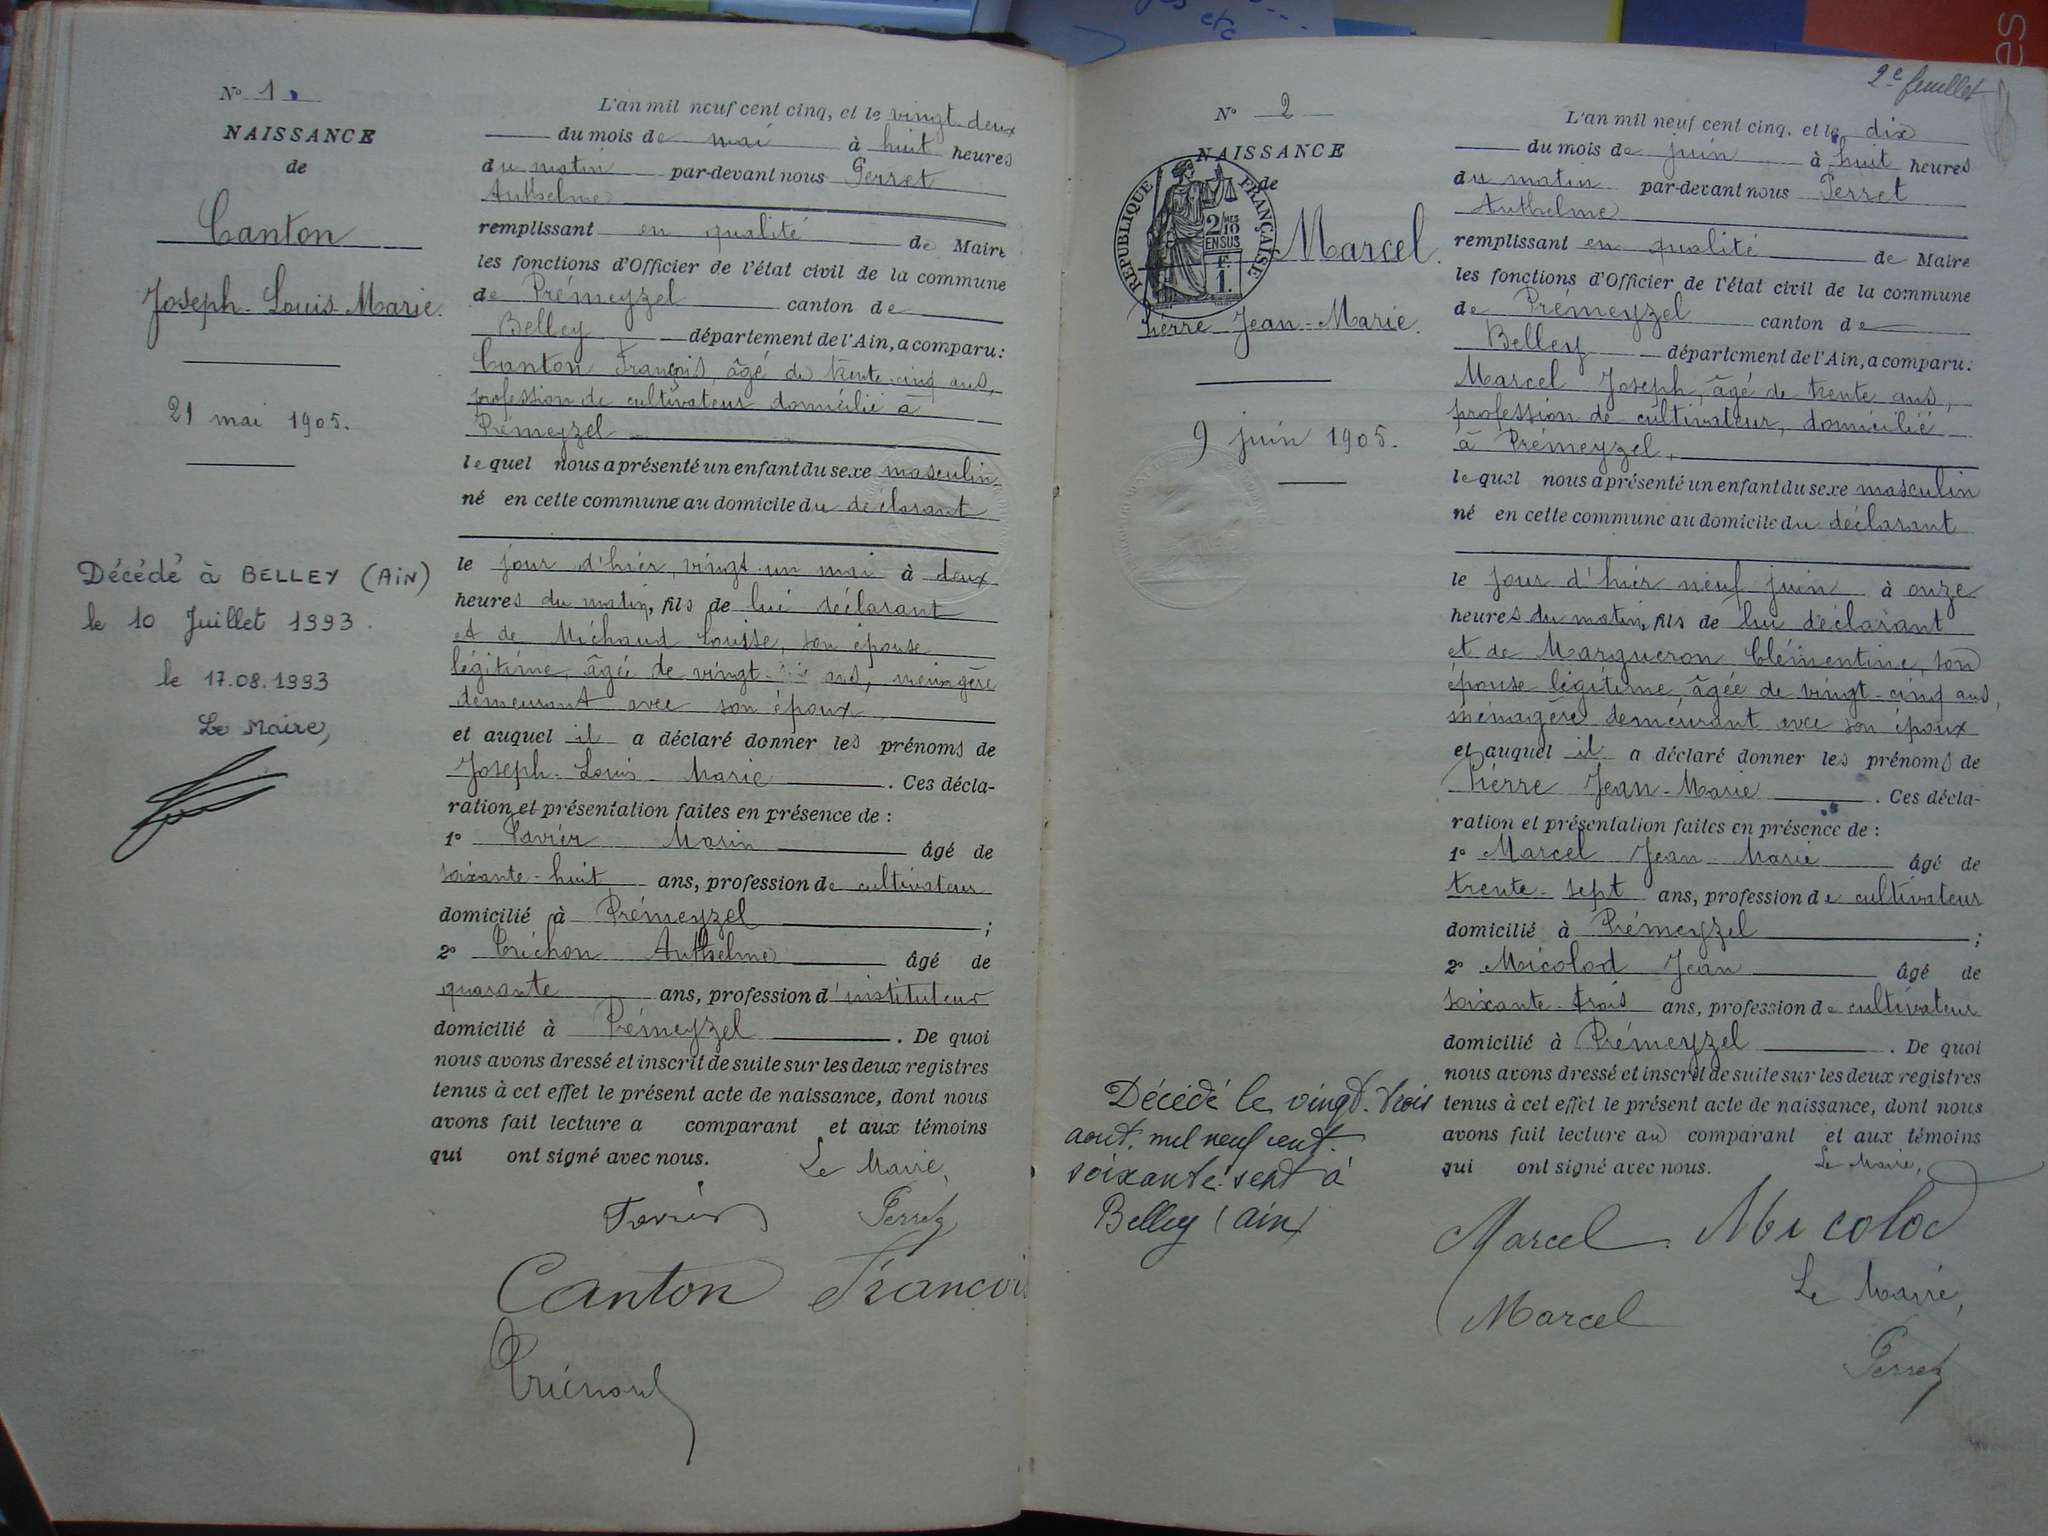 Nº 1
NAISSANCE
de
Canton
Joseph-Louis-Marie.
21 mai 1905.
Décédé à BELLEY (AIN)
le 10 Juillet 1993.
le 17.08.1993
Le Maire,
L'an mil neuf cent cinq, et le vingt-deux
du mois de mai à huit heures
du matin par-devant nous Perret
Anthelme
remplissant en qualité de Maire
les fonctions d'Officier de l'état civil de la commune
de Prémeyzel canton de
Belley département de l'Ain, a comparu:
Canton François, âgé de trente-cinq ans,
profession de cultivateur domicilié à
Prémeyzel
lequel nous a présenté un enfant du sexe masculin
né en cette commune au domicile du déclarant
le jour d'hier, vingt-un mai à deux
heures du matin, fils de lui déclarant
et de Michaud Louise, son épouse
légitime, âgée de vingt- ans, ménagère
demeurant avec son époux
et auquel il a déclaré donner les prénoms de
Joseph-Louis-Marie. Ces décla-
ration et présentation faites en présence de :
1º Marin âgé de
soixante-huit ans, profession de cultivateur
domicilié à Prémeyzel ;
2º Anthelme âgé de
quarante ans, profession d'instituteur
domicilié à Prémeyzel. De quoi
nous avons dressé et inscrit de suite sur les deux registres
tenus à cet effet le présent acte de naissance, dont nous
avons fait lecture a comparant et aux témoins
qui ont signé avec nous. Le Maire,
Perret
Canton François
2e feuillet
Nº 2
NAISSANCE
de
REPUBLIQUE FRANÇAISE
2/10
EN SUS
F.
1.
Marcel.
Pierre Jean-Marie.
9 juin 1905.
Décédé le vingt-trois
aout mil neuf cent
soixante-sept à
Belley (ain)
L'an mil neuf cent cinq, et le dix
du mois de juin à huit heures
du matin par-devant nous Perret
Anthelme
remplissant en qualité de Maire
les fonctions d'Officier de l'état civil de la commune
de Prémeyzel canton de
Belley département de l'Ain, a comparu:
Marcel Joseph, âgé de trente ans,
profession de cultivateur, domicilié
à Prémeyzel,
lequel nous a présenté un enfant du sexe masculin
né en cette commune au domicile du déclarant
le jour d'hier neuf juin à onze
heures du matin, fils de lui déclarant
et de Margueron Clémentine, son
épouse légitime, âgée de vingt-cinq ans,
ménagère demeurant avec son époux
et auquel il a déclaré donner les prénoms de
Pierre Jean-Marie. Ces décla-
ration et présentation faites en présence de :
1º Marcel Jean-Marie âgé de
trente-sept ans, profession de cultivateur
domicilié à Prémeyzel ;
2º Micolod Jean âgé de
soixante-trois ans, profession de cultivateur
domicilié à Prémeyzel. De quoi
nous avons dressé et inscrit de suite sur les deux registres
tenus à cet effet le présent acte de naissance, dont nous
avons fait lecture au comparant et aux témoins
qui ont signé avec nous. Le Maire,
Marcel Micolod
Marcel Le Maire,
Perret